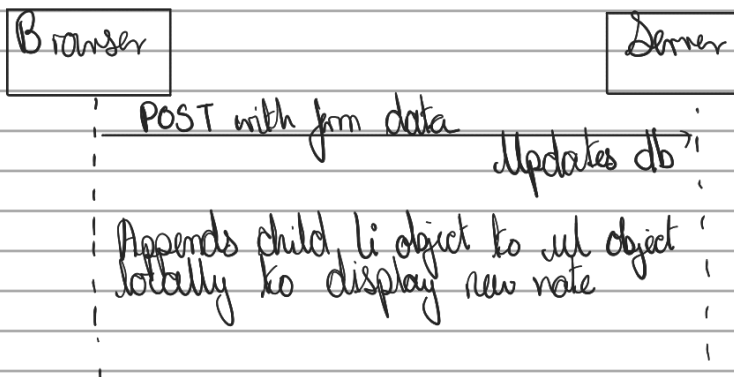 Browser
Server
POST with form data
Updates db
Appends child li object to ul object
locally to display new note